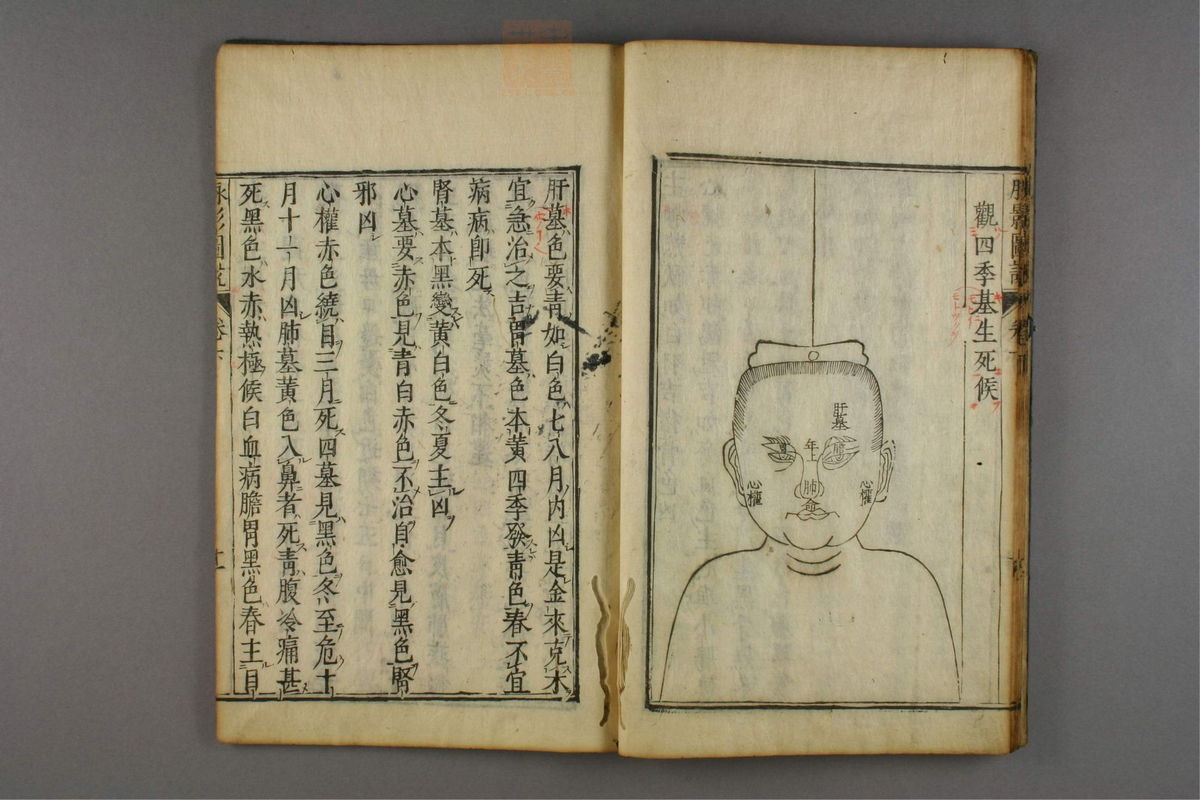 觀四季墓生死候
肝墓
年上
心權
肺
命
心權
肝墓色要青如白色七八月内凶是金來克木
宜急治之吉胃墓色本黃四季發青色春不宜
病病即死
腎墓本黑變黃白色冬夏主凶
心墓要赤色見青白赤色不治自愈見黑色腎
邪凶
心權赤色繞目三月死四墓見黑色冬至危十
月十一月凶肺墓黃色入鼻者死青腹冷痛甚
死黑色水赤熱極候白血病膽胃黑色春主目
卷下